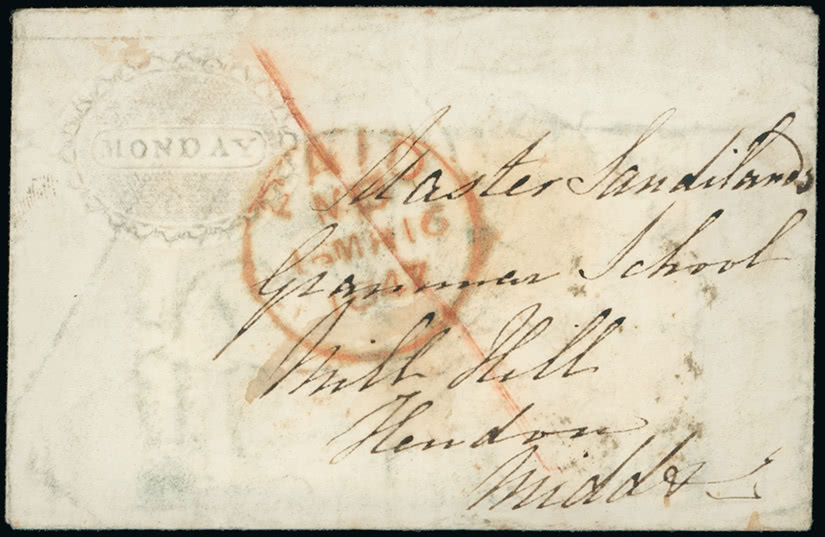 MONDAY
PAID
16
1847
Master Sandilands
Grammar School
Mill Hill
Hendon
Middx